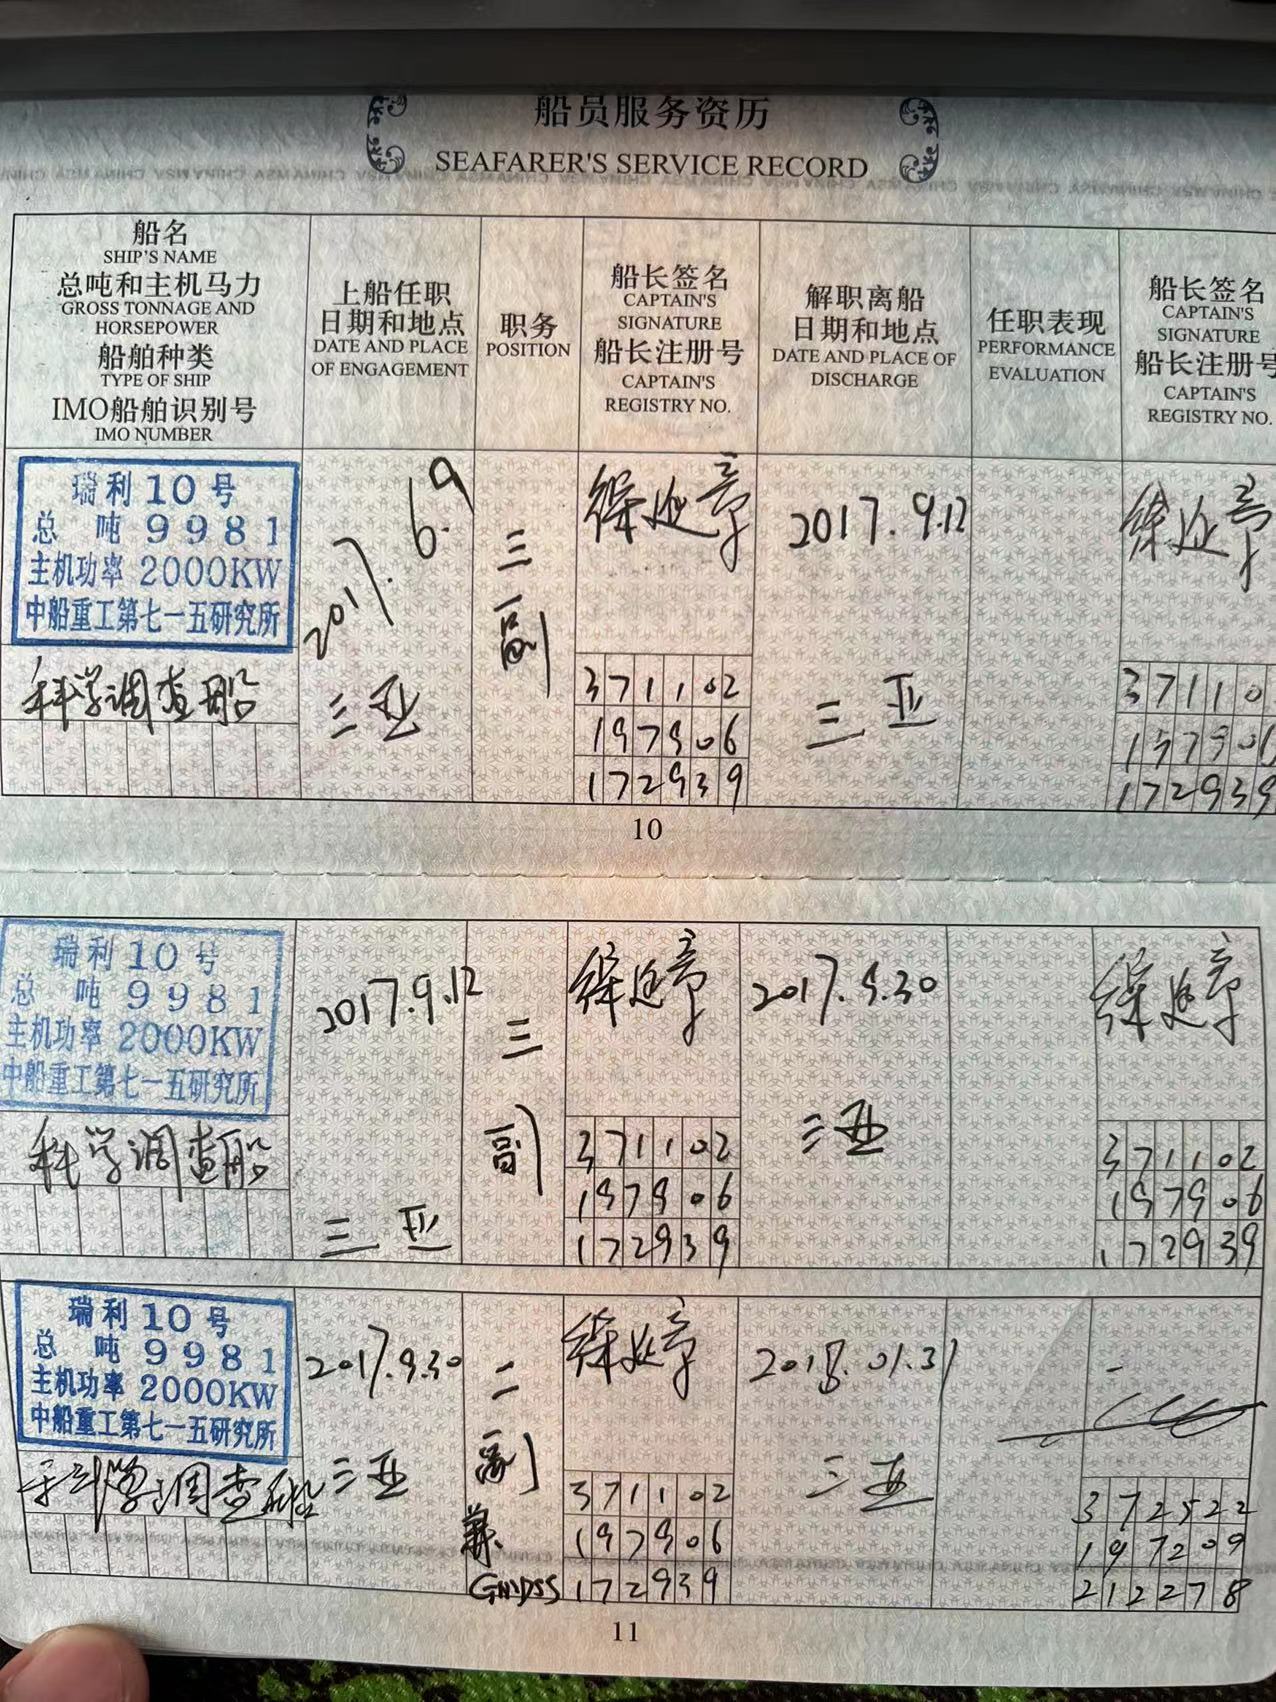 船员服务资历
SEAFARER'S SERVICE RECORD
船名
SHIP'S NAME
总吨和主机马力
GROSS TONNAGE AND
HORSEPOWER
船舶种类
TYPE OF SHIP
IMO船舶识别号
IMO NUMBER
上船任职
日期和地点
DATE AND PLACE
OF ENGAGEMENT
职务
POSITION
船长签名
CAPTAIN'S
SIGNATURE
船长注册号
CAPTAIN'S
REGISTRY NO.
解职离船
日期和地点
DATE AND PLACE OF
DISCHARGE
任职表现
PERFORMANCE
EVALUATION
船长签名
CAPTAIN'S
SIGNATURE
船长注册号
CAPTAIN'S
REGISTRY NO.
瑞利10号
总 吨 9981
主机功率 2000KW
中船重工第七一五研究所
科学调查船
2017.6.9
三亚
三副
371102
197906
172939
2017.9.12
三亚
37110
197906
172939
10
瑞利10号
总 吨 9981
主机功率 2000KW
中船重工第七一五研究所
科学调查船
2017.9.12
三亚
三副
371102
197906
172939
2017.9.30
三亚
371102
197906
172939
瑞利10号
总 吨 9981
主机功率 2000KW
中船重工第七一五研究所
科学调查船
2017.9.30
三亚
二副
兼
GMDSS
371102
197906
172939
2018.01.31
三亚
372522
197209
212278
11